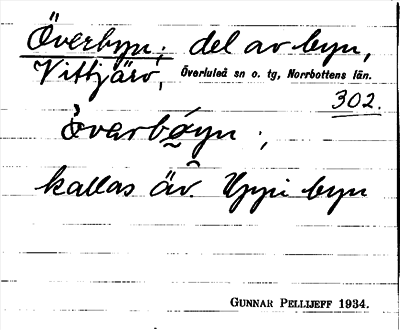 Överbyn; del av byn,
Vittjärv, Överluleå sn o. tg, Norrbottens län.
302.
òvarbǿ̰yn ;
kallas äv. Uppi byn
GUNNAR PELLIJEFF 1934.